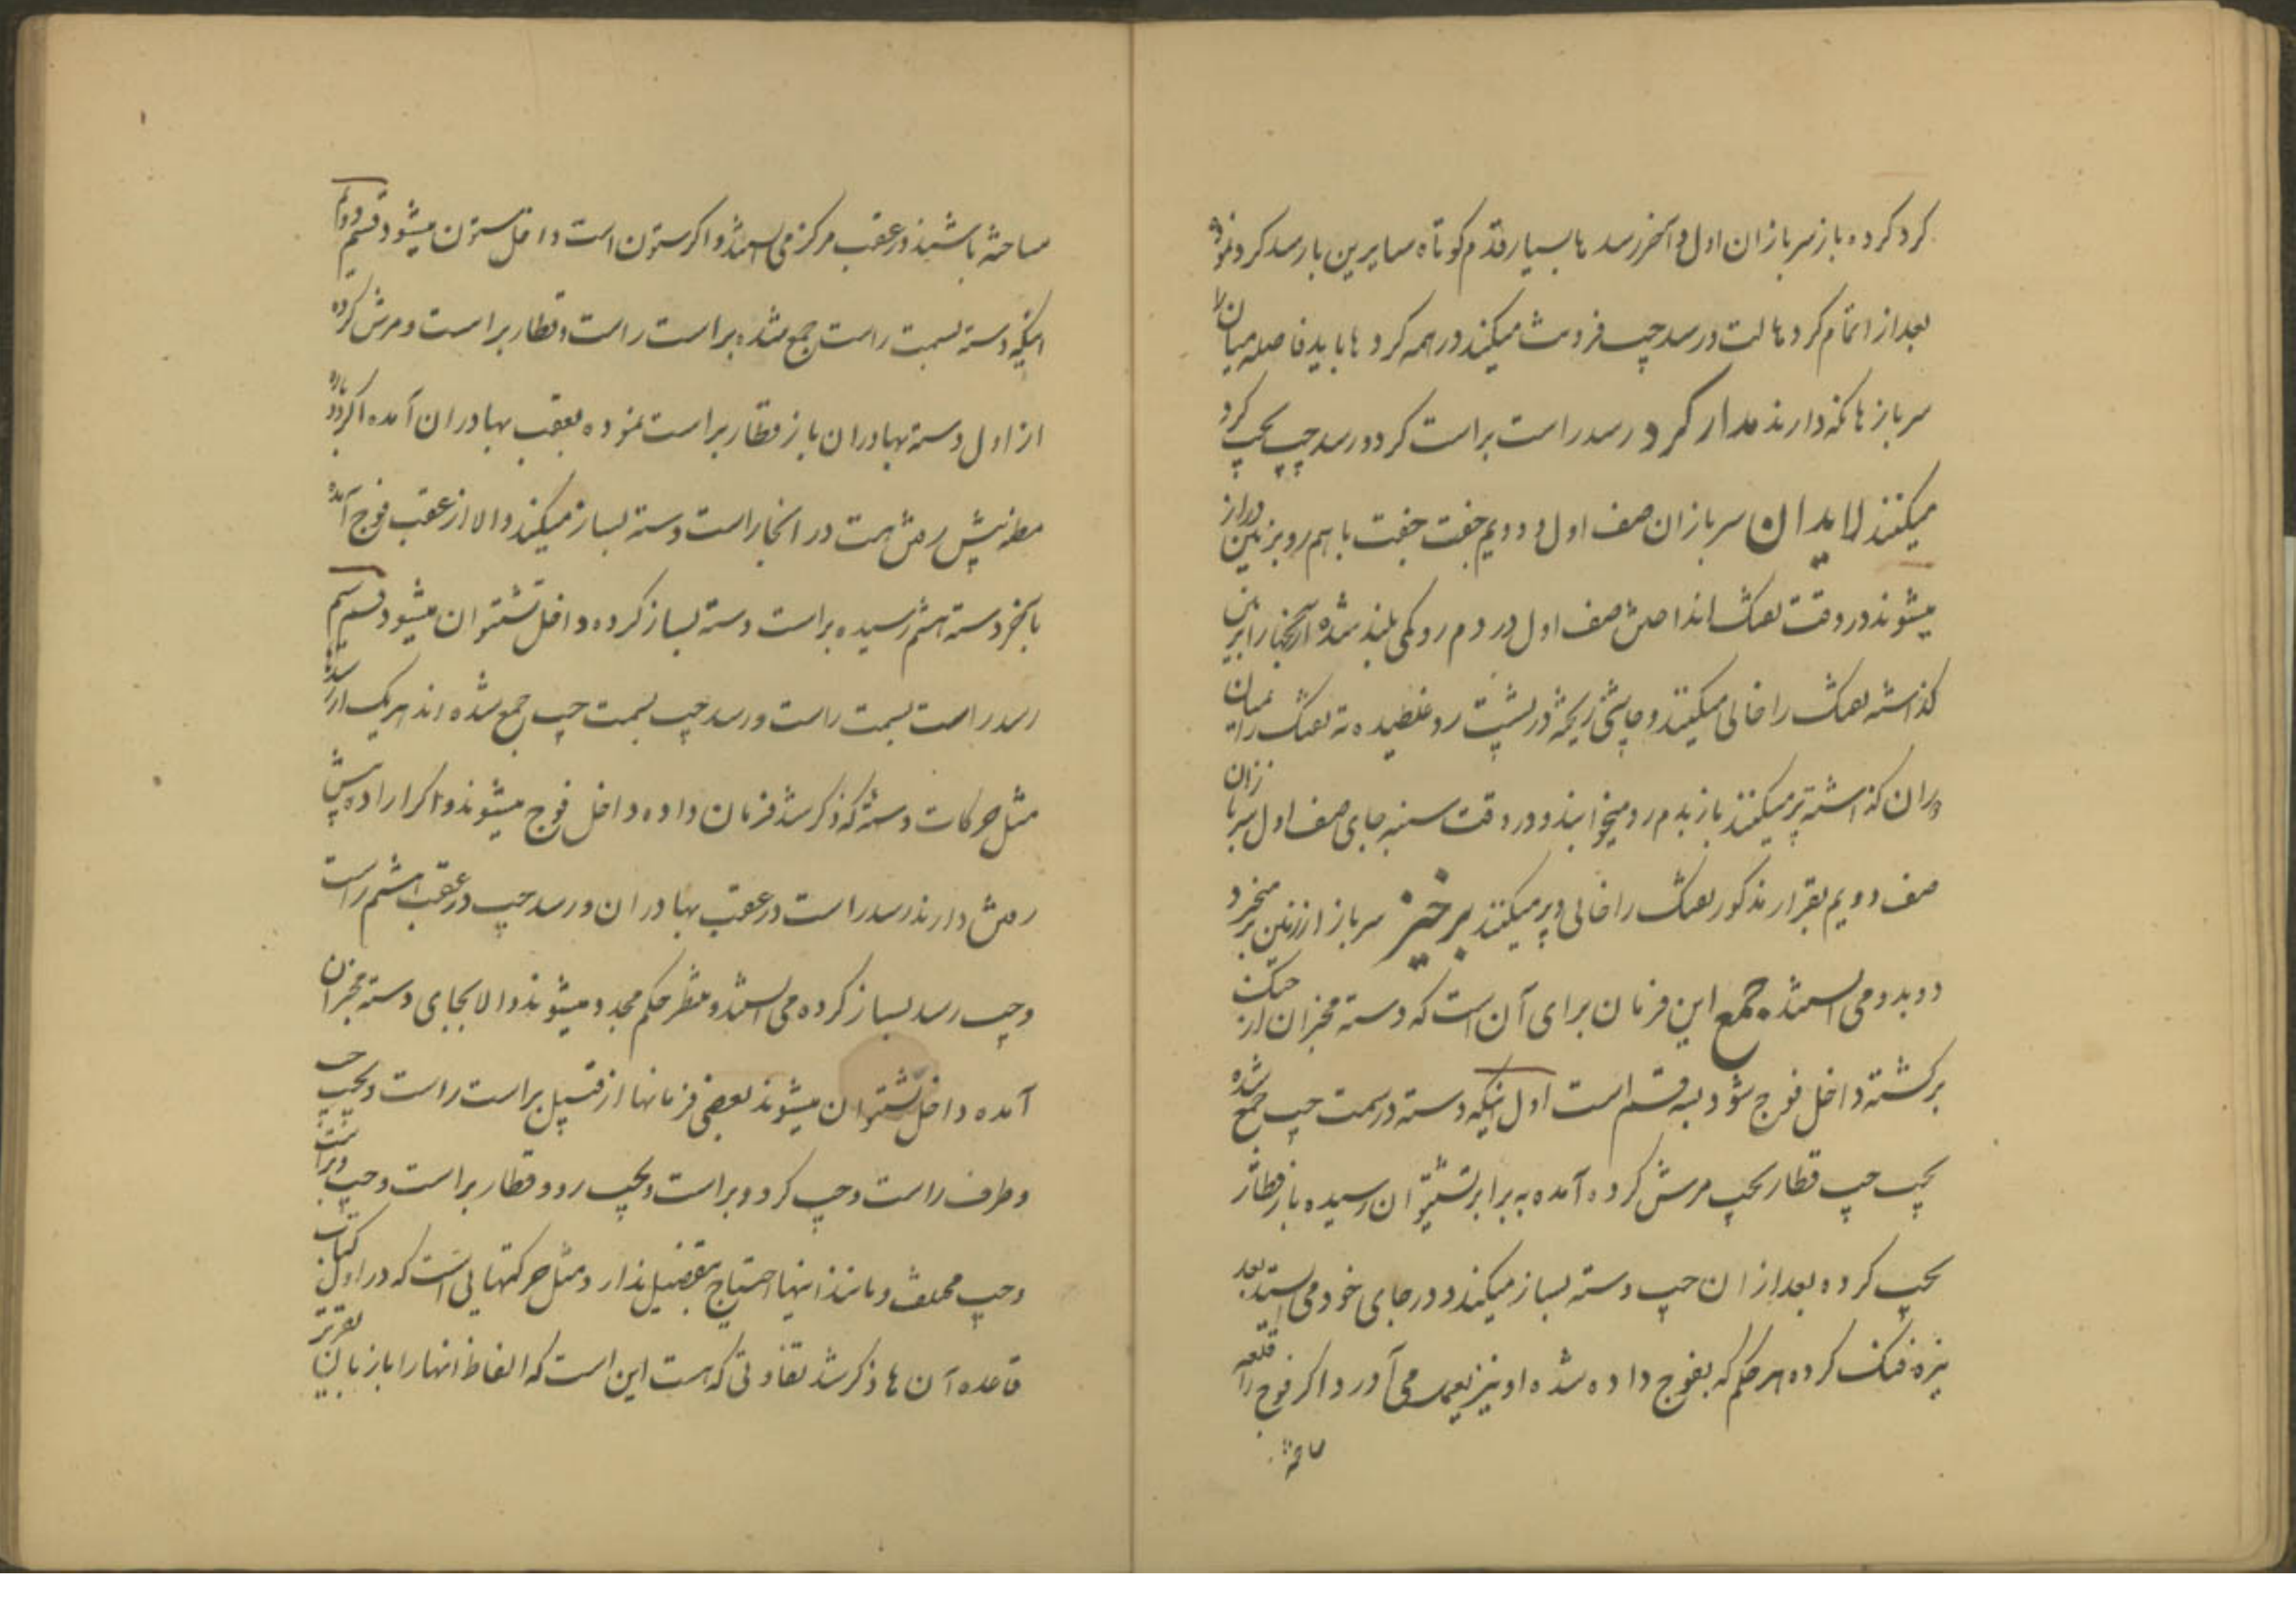 کرد کرده باز سربازان اول و آخر رسدها بسیار قدم کوتاه سایرین بارسد کرد نموده
بعد از اتمام کردها لت و رسد چپ فروت میکند در همه کردها باید فاصله میان
سربازها نکه دارند مدار کرد رسد راست براست کرد و رسد چپ بچپ کرد
میکنند لایدان سربازان صف اول و دویم جفت جفت با هم رو بزمین دراز
میشوند در وقت تفنک انداختن صف اول در دم رو کمی بلند شده آرنجها را بزمین
کذاشته تفنک را خالی میکنند و چاشنی ریخته در پشت رو غلطیده ته تفنک را بمیان
دو ران کذاشته پر میکنند باز بدم رو میخوابند و در وقت سنبه جای صف اول سربازان
صف دویم بقرار مذکور تفنک را خالی و پر میکنند برخیز سرباز از زمین برمیخیزد
دوبدو می ایستند جمع این فرمان برای آن است که دسته مخبران از جنک
برکشته داخل فوج شود بسه قسم است اول اینکه دسته در سمت چپ جمع شده
بچپ چپ قطار بچپ مرش کرده آمده به برابر نشتوان رسیده باز قطار
بچپ کرده بعد از ان چپ دسته بساز میکند و در جای خود می ایستد بعد
نیزه فنک کرده هر حکم که بفوج داده شده او نیز بعمل می آورد و اکر فوج قلعه را
ساخته
ساخته باشند در عقب مرکز می ایستد و اکر ستون است داخل ستون میشود قسم دوم
اینکه دسته بسمت راست جمع شده براست راست و قطار براست و مرش کرده
از اول دسته بهادران باز قطار براست نموده بعقب بهادران آمده اکر دوباره
مظنه پیش رفتن هست در انجا راست دسته بساز میکند والا از عقب فوج آمده
بآخر دسته هشتم رسیده براست دسته بساز کرده داخل نشتوان میشود قسم سیم
رسد راست بسمت راست و رسد چپ بسمت چپ جمع شده اند هریک از رسدها
مثل حرکات دسته که ذکر شد فرمان داده داخل فوج میشوند و اکر اراده پیش
رفتن دارند رسد راست در عقب بهادران و رسد چپ در عقب هشتم راست
و چپ رسد بساز کرده می ایستند و منتظر حکم مجدد میشوند والا بجای دسته مخبران
آمده داخل نشتوان میشوند بعضی فرمانها از قبیل براست راست و بچپ چپ
و طرف راست و چپ کرد و براست و بچپ رو و قطار براست و چپ و براست
و چپ مختلف و مانند اینها احتیاج بتفصیل ندارد و مثل حرکتهایی است که در اول کتاب
قاعده آن ها ذکر شد تفاوتی که هست این است که الفاظ انها را با زبان تقریر